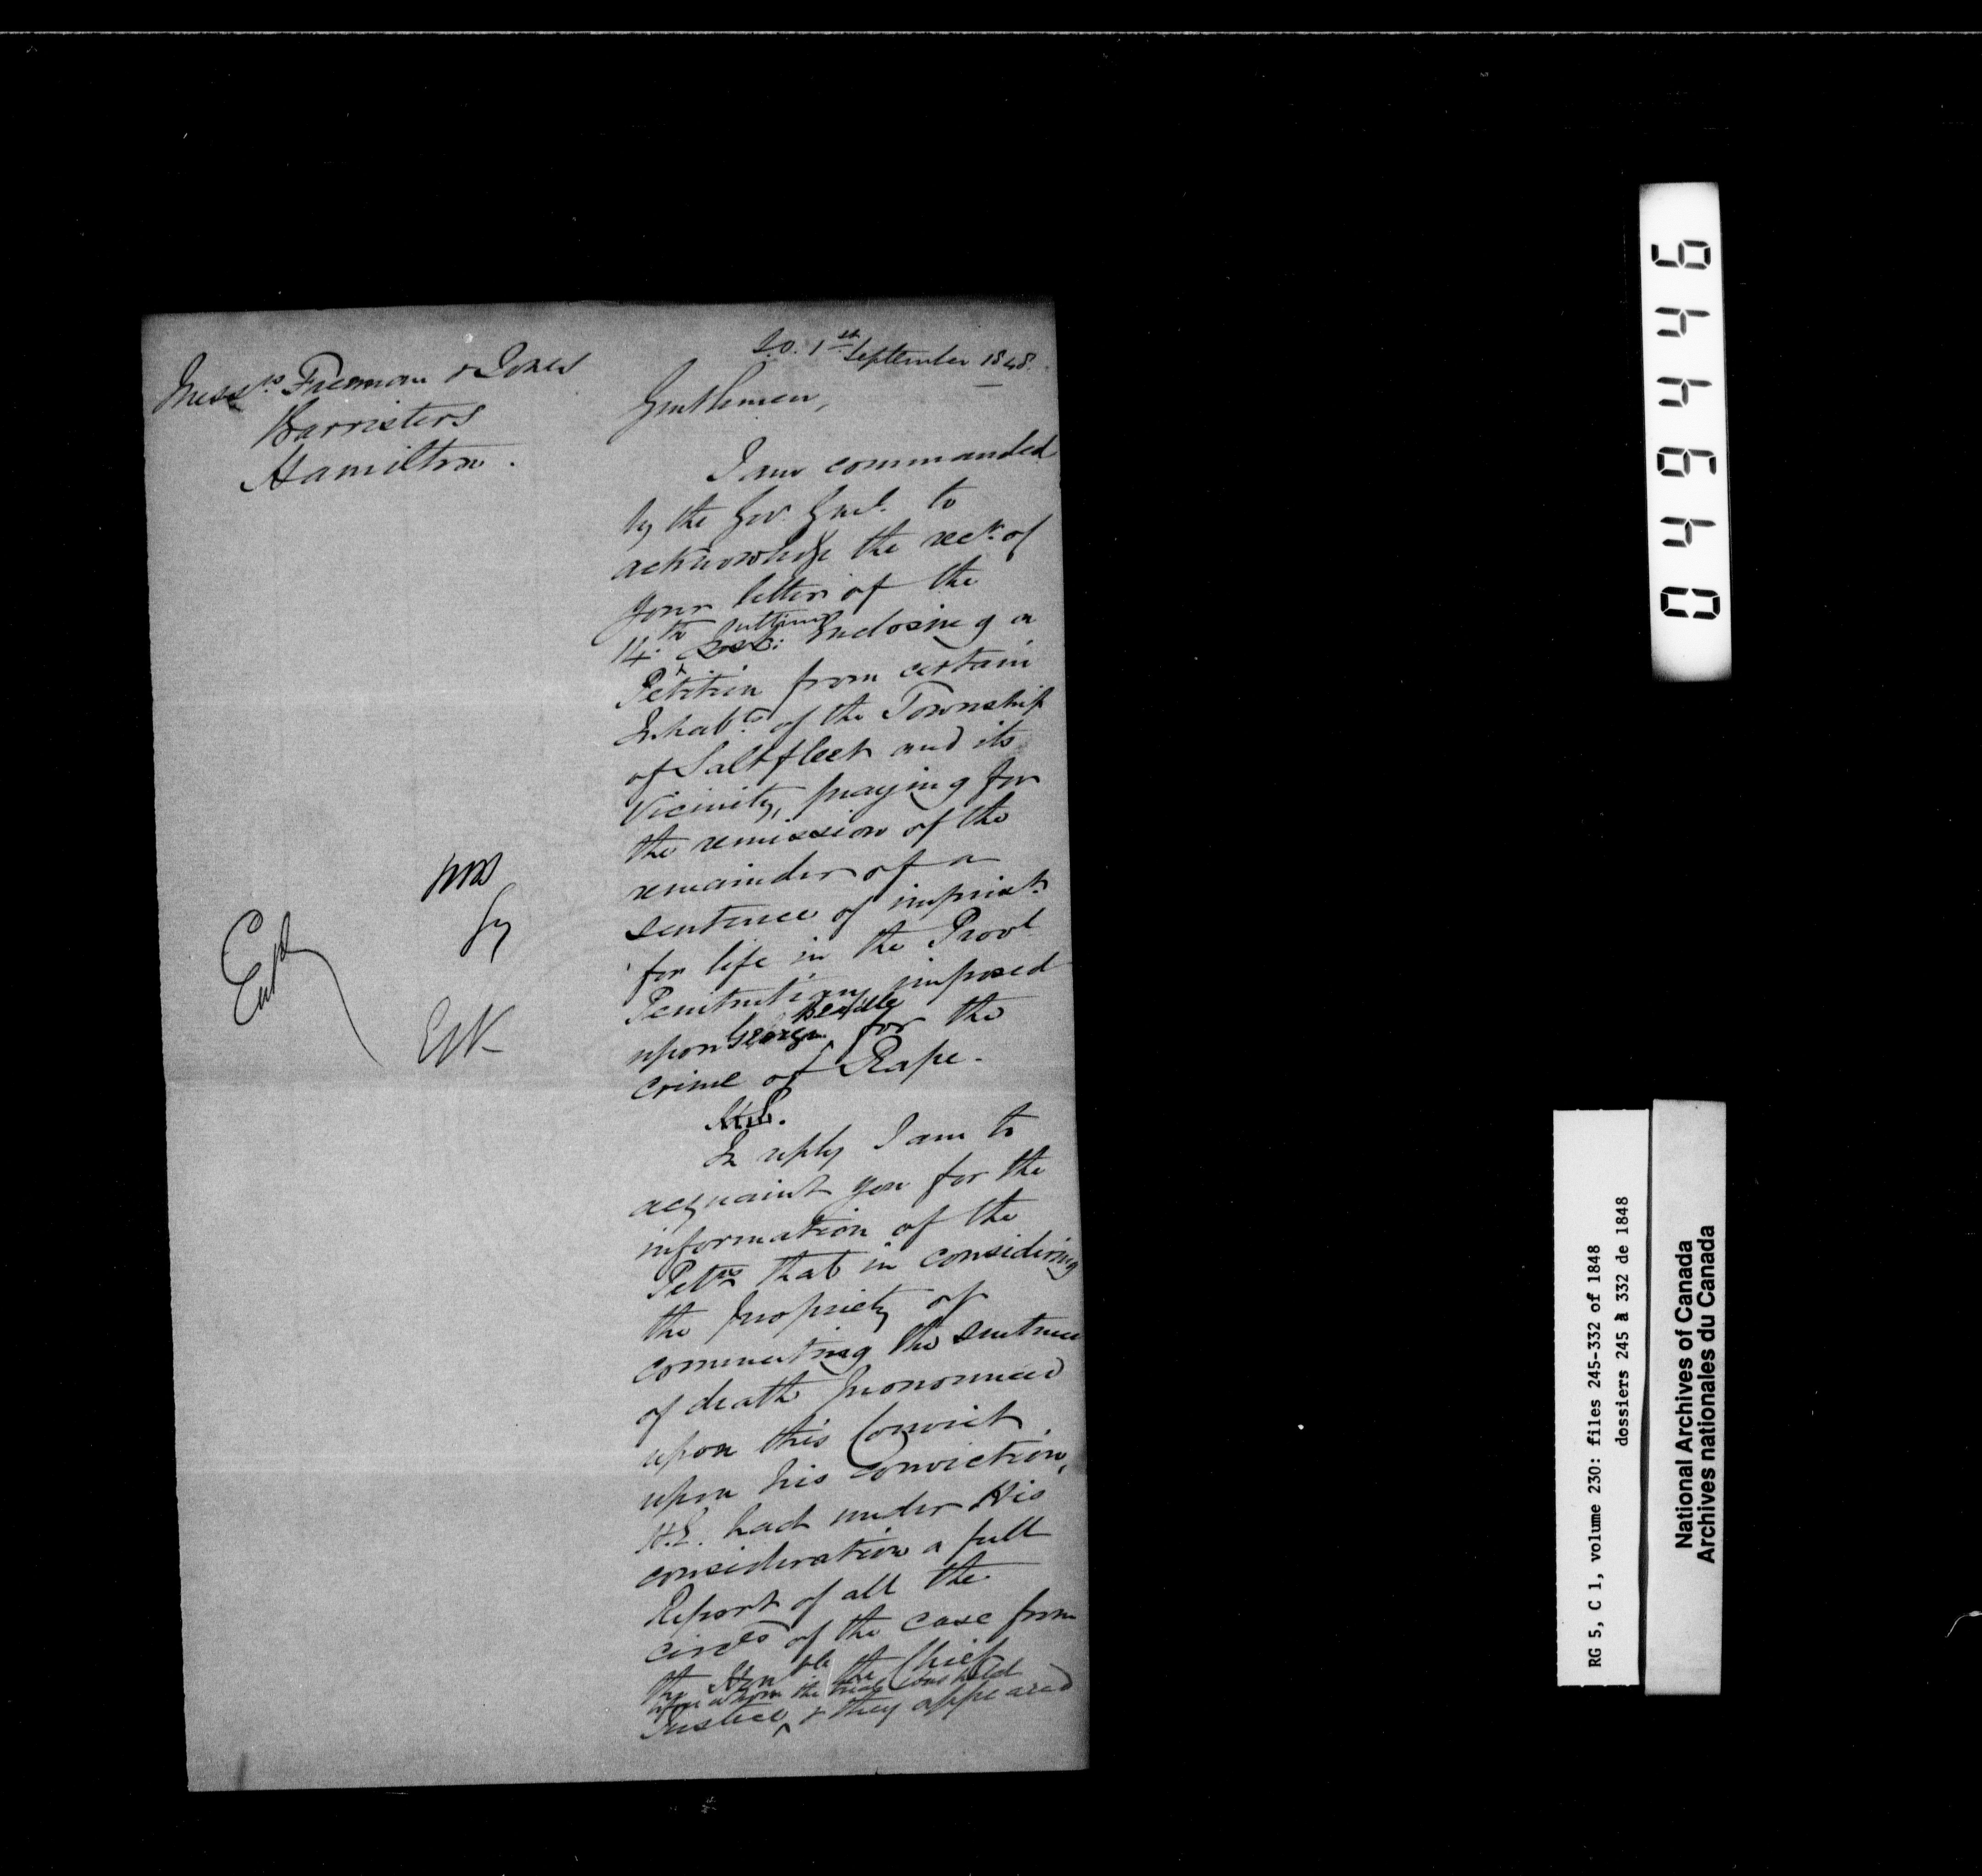 S.O. 1st September 1848.
Messrs. Freeman & Jones
Barristers
Hamilton.
Gentlemen,
I am commanded
by the Gov. Genl. to
acknowledge the rect. of
your letter of the
14th ultimo Enclosing a
Petition from certain
Inhabts. of the Township
of Saltfleet and its
Vicinity, praying for
the remission of the
remainder of a
sentence of imprisnt.
for life in the Provl.
Penitentiary imposed
upon George Beadle for the
crime of Rape.
H.E.
In reply I am to
acquaint you for the
information of the
Petrs. that in considering
the propriety of
commuting the sentence
of death pronounced
upon this Convict
upon his Conviction,
H.E. had under His
consideration a full
Report of all the
circes of the case from
the Honble the Chief
before whom the trial was held
Justice & they appeared
Entd
044446
RG 5, C 1, volume 230: files 245-332 of 1848
dossiers 245 à 332 de 1848
National Archives of Canada
Archives nationales du Canada